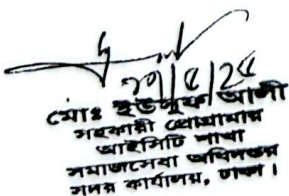 ২০/৫/২৫
মোঃ ইউসুফ আলী
সহকারী প্রোগ্রামার
আইসিটি শাখা
সমাজসেবা অধিদপ্তর
সদর কার্যালয়, ঢাকা।